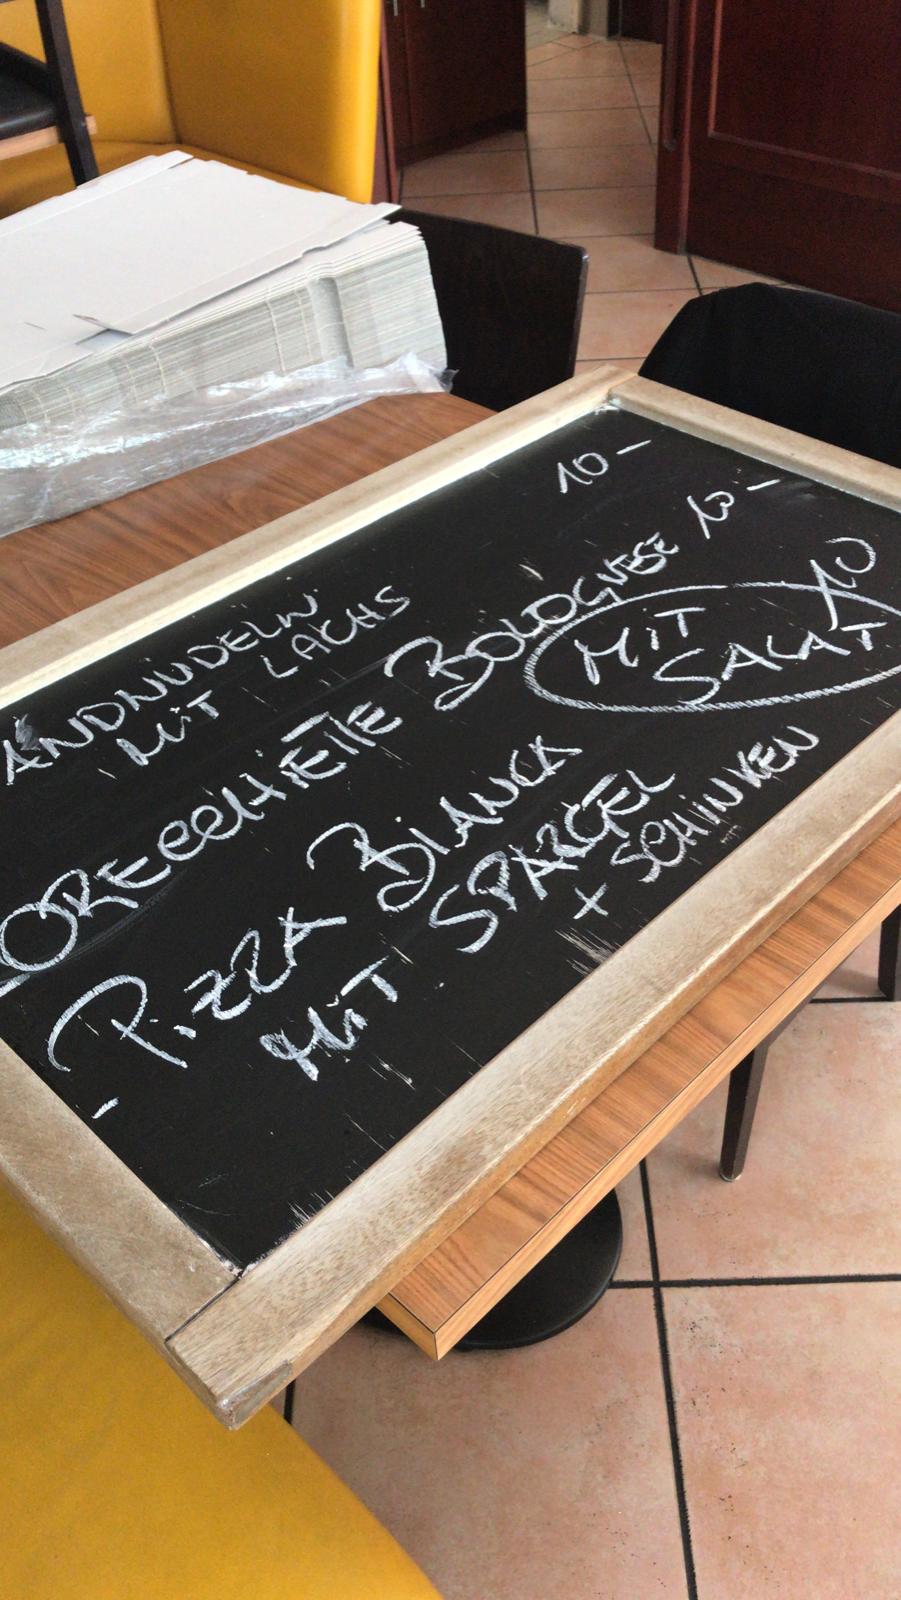 ANDNUDELN
MIT LACHS 10-
ORECCHIETTE BOLOGNESE 10-
MIT
SALAT
PIZZA BIANCA 10
MIT SPARGEL
+ SCHINKEN
-